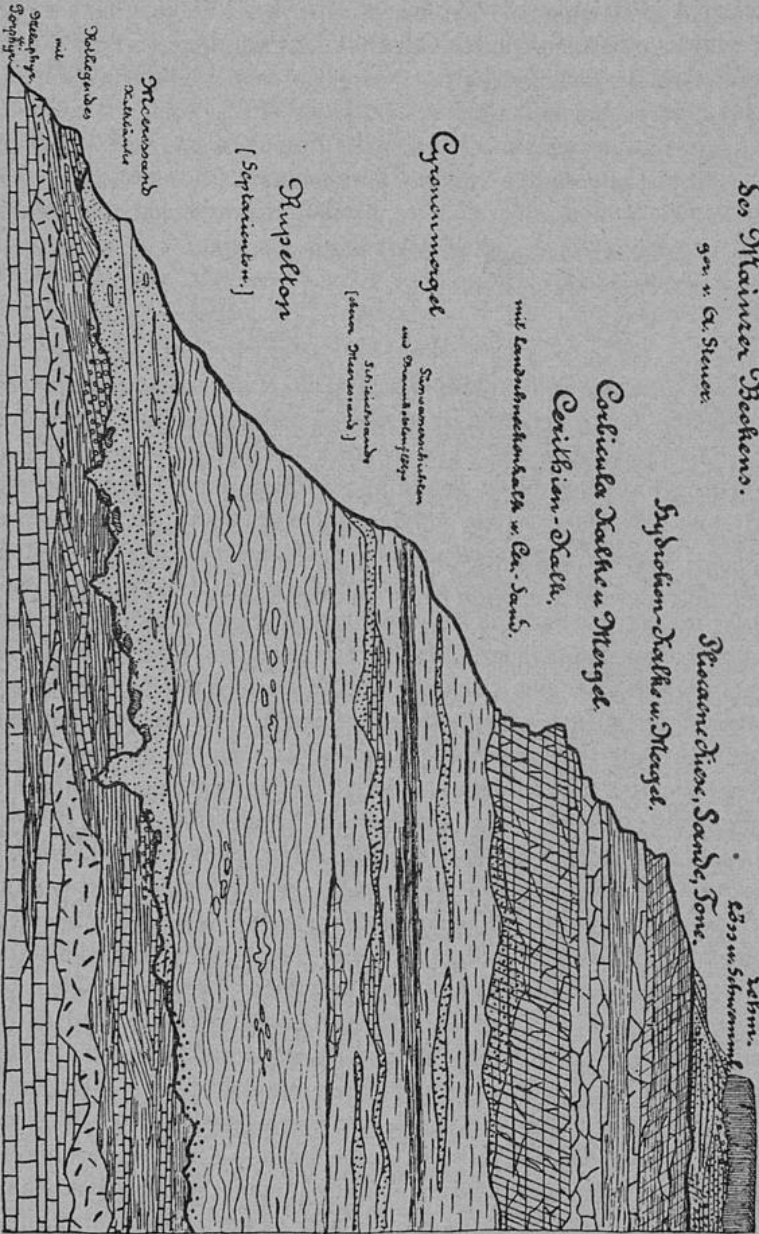 des Mainzer Beckens.
gez. v. A. Steuer.
Löss u. Schwemmlehm.
Pliocäne Kiese, Sande, Tone.
Hydrobien-Kalke u. Mergel.
Corbicula Kalke u. Mergel.
Cerithien-Kalk,
mit Landschneckenkalk u. Cer.-Sand.
Cyrenenmergel
und Braunkohlenflötze
Schleichsande
Meeressand]
Rupelton
[Septarienton.]
Meeressand
Kalkbänke
Rotliegendes
mit
Melaphyr
u.
Porphyr.